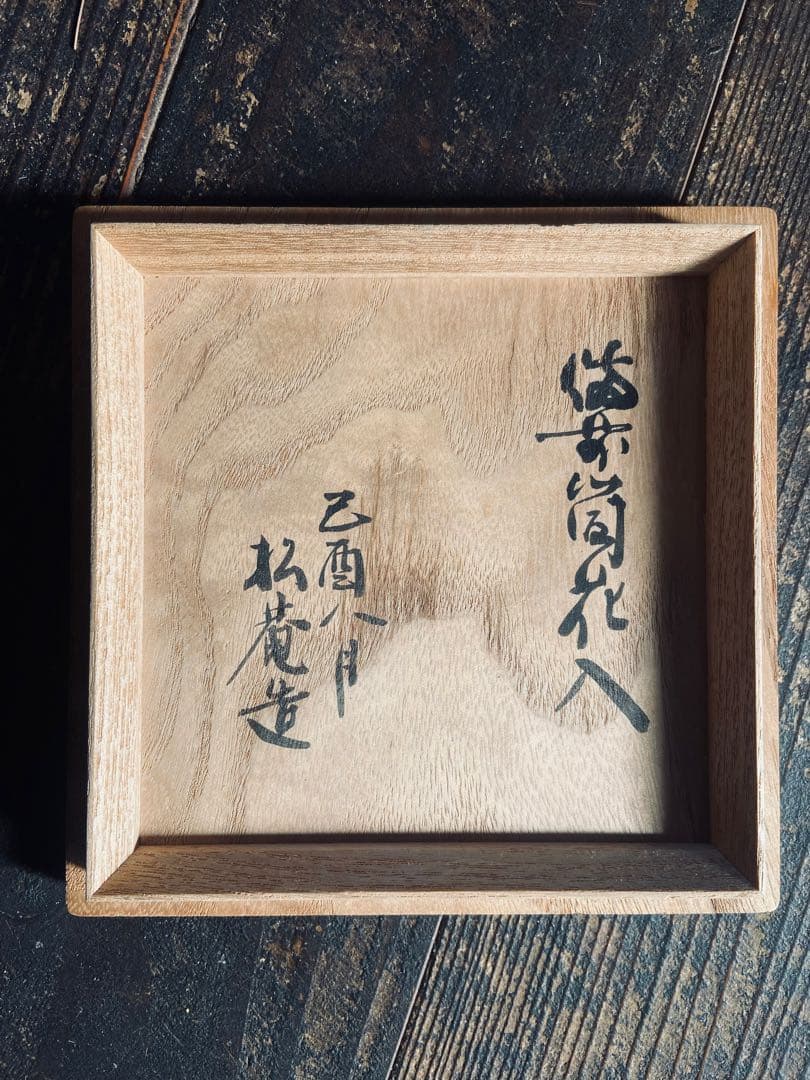 備前筒花入
己酉八月
松菴造